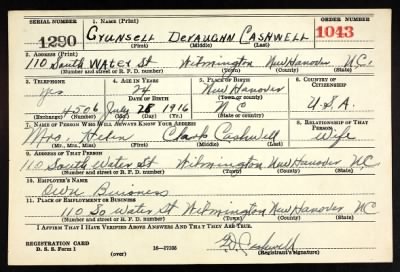 SERIAL NUMBER 1. NAME (Print) ORDER NUMBER
1290 Gyunsell Deraughn Cashwell 1043
(First) (Middle) (Last)
2. ADDRESS (Print)
110 South Water St Wilmington New Hanover N.C.
(Number and street or R. F. D. number) (Town) (County) (State)
3. TELEPHONE 4. AGE IN YEARS 5. PLACE OF BIRTH 6. COUNTRY OF CITIZENSHIP
yes 24 New Hanover
DATE OF BIRTH (Town or county)
4506 July 28 1916 N C U.S.A.
(Exchange) (Number) (Mo.) (Day) (Yr.) (State or country)
7. NAME OF PERSON WHO WILL ALWAYS KNOW YOUR ADDRESS 8. RELATIONSHIP OF THAT PERSON
Mrs. Helen Clark Cashwell Wife
(Mr., Mrs., Miss) (First) (Middle) (Last)
9. ADDRESS OF THAT PERSON
110 South Water St Wilmington New Hanover NC
(Number and street or R. F. D. number) (Town) (County) (State)
10. EMPLOYER'S NAME
Own Buisness
11. PLACE OF EMPLOYMENT OR BUSINESS
110 So Water St Wilmington New Hanover NC
(Number and street or R. F. D. number) (Town) (County) (State)
I AFFIRM THAT I HAVE VERIFIED ABOVE ANSWERS AND THAT THEY ARE TRUE.
REGISTRATION CARD
D. S. S. Form 1 16-17105 G.D. Cashwell
(Registrant's signature)